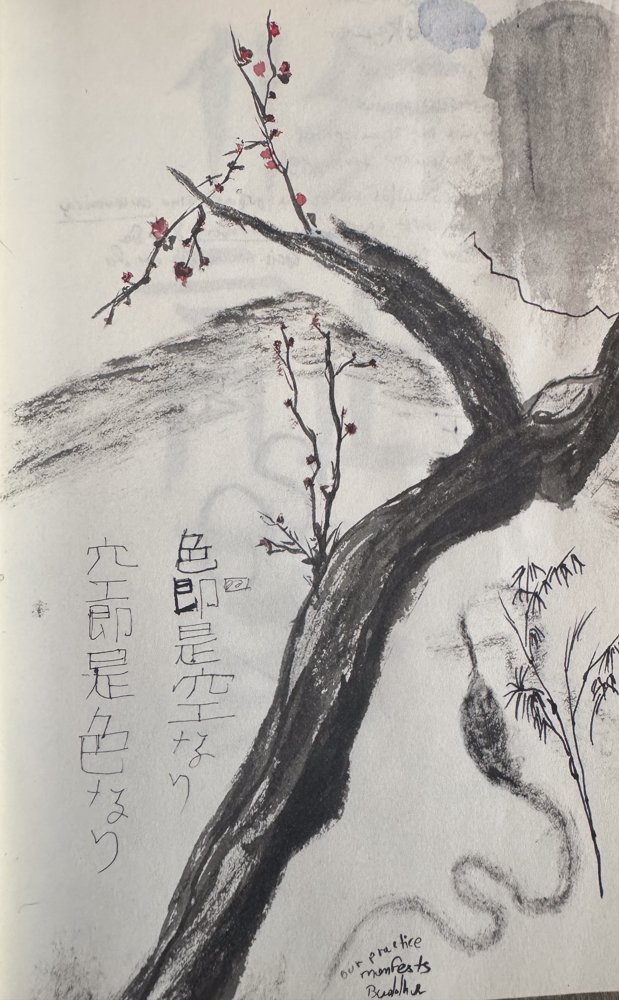 色即是空なり
空即是色なり
our practice
manifests
Buddha